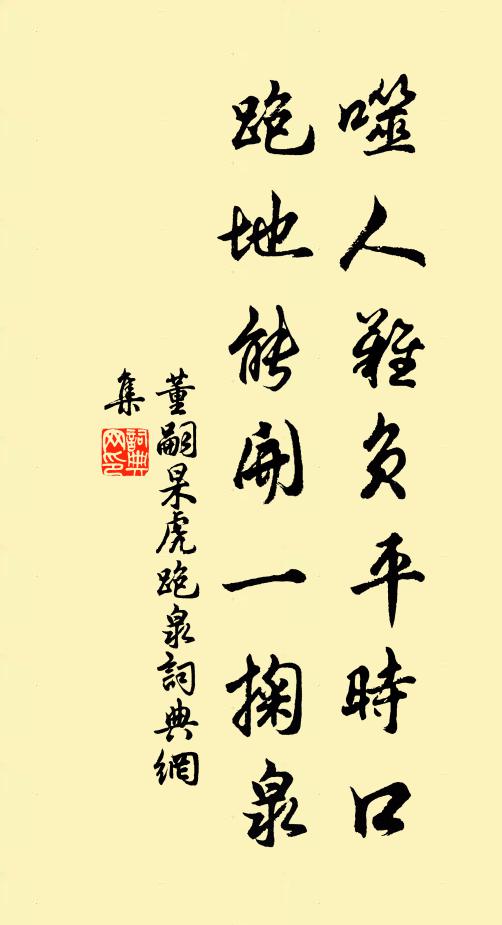 噬人難負平時口
跑地能開一掬泉
董嗣杲虎跑泉詞典網
集
詞典
网印